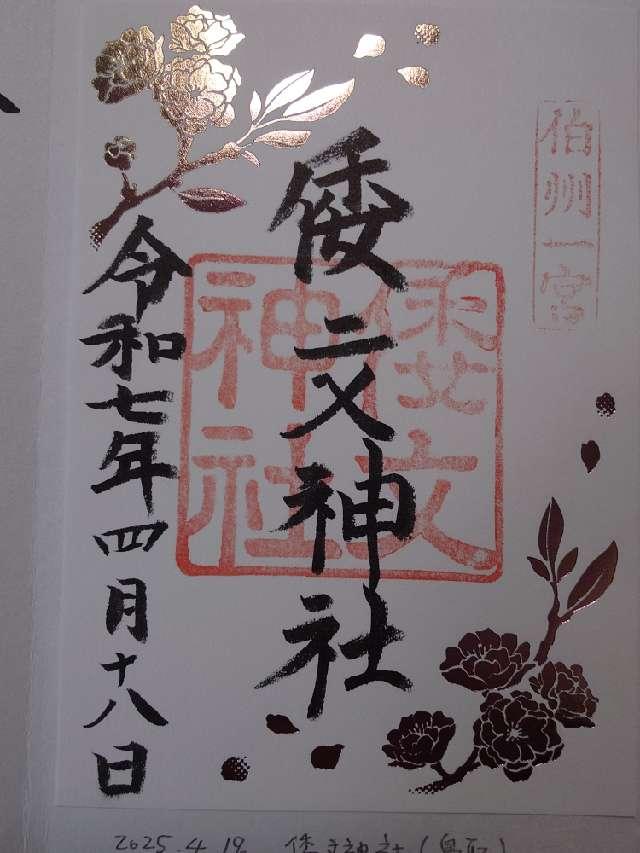 伯州一宮
倭文神社
倭文神社
令和七年四月十八日
2025.4.19 倭文神社(鳥取)